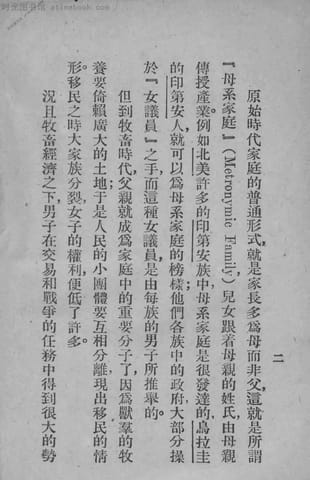 时光图书馆 - atimebook.com
二
原始時代家庭的普通形式，就是家長多爲母而非父，這就是所謂
『母系家庭』(Metronymic Family)兒女跟着母親的姓氏，由母親
傳授產業。例如北美許多的印第安族中，母系家庭是很發達的，烏拉圭
的印第安人，就可以爲母系家庭的榜樣；他們各族中的政府，大部分操
於『女議員』之手，而這種女議員，是由每族的男子所推舉的。
但到牧畜時代，父親就成爲家庭中的重要分子了，因爲獸羣的牧
養要倚賴廣大的土地；于是人民的小團體要互相分離，現出移民的情
形。移民之時，大家族分裂，女子的權利，便低了許多。
況且牧畜經濟之下，男子在交易和戰爭的任務中得到很大的勢